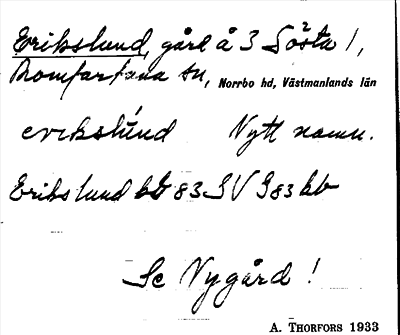 Erikslund, gård å 3 Sösta 1,
Romfartuna sn, Norrbo hd, Västmanlands län
erikslúnd Nytt namn.
Erikslund bG 83 SV J83 bb
Se Nygård!
A. THORFORS 1933